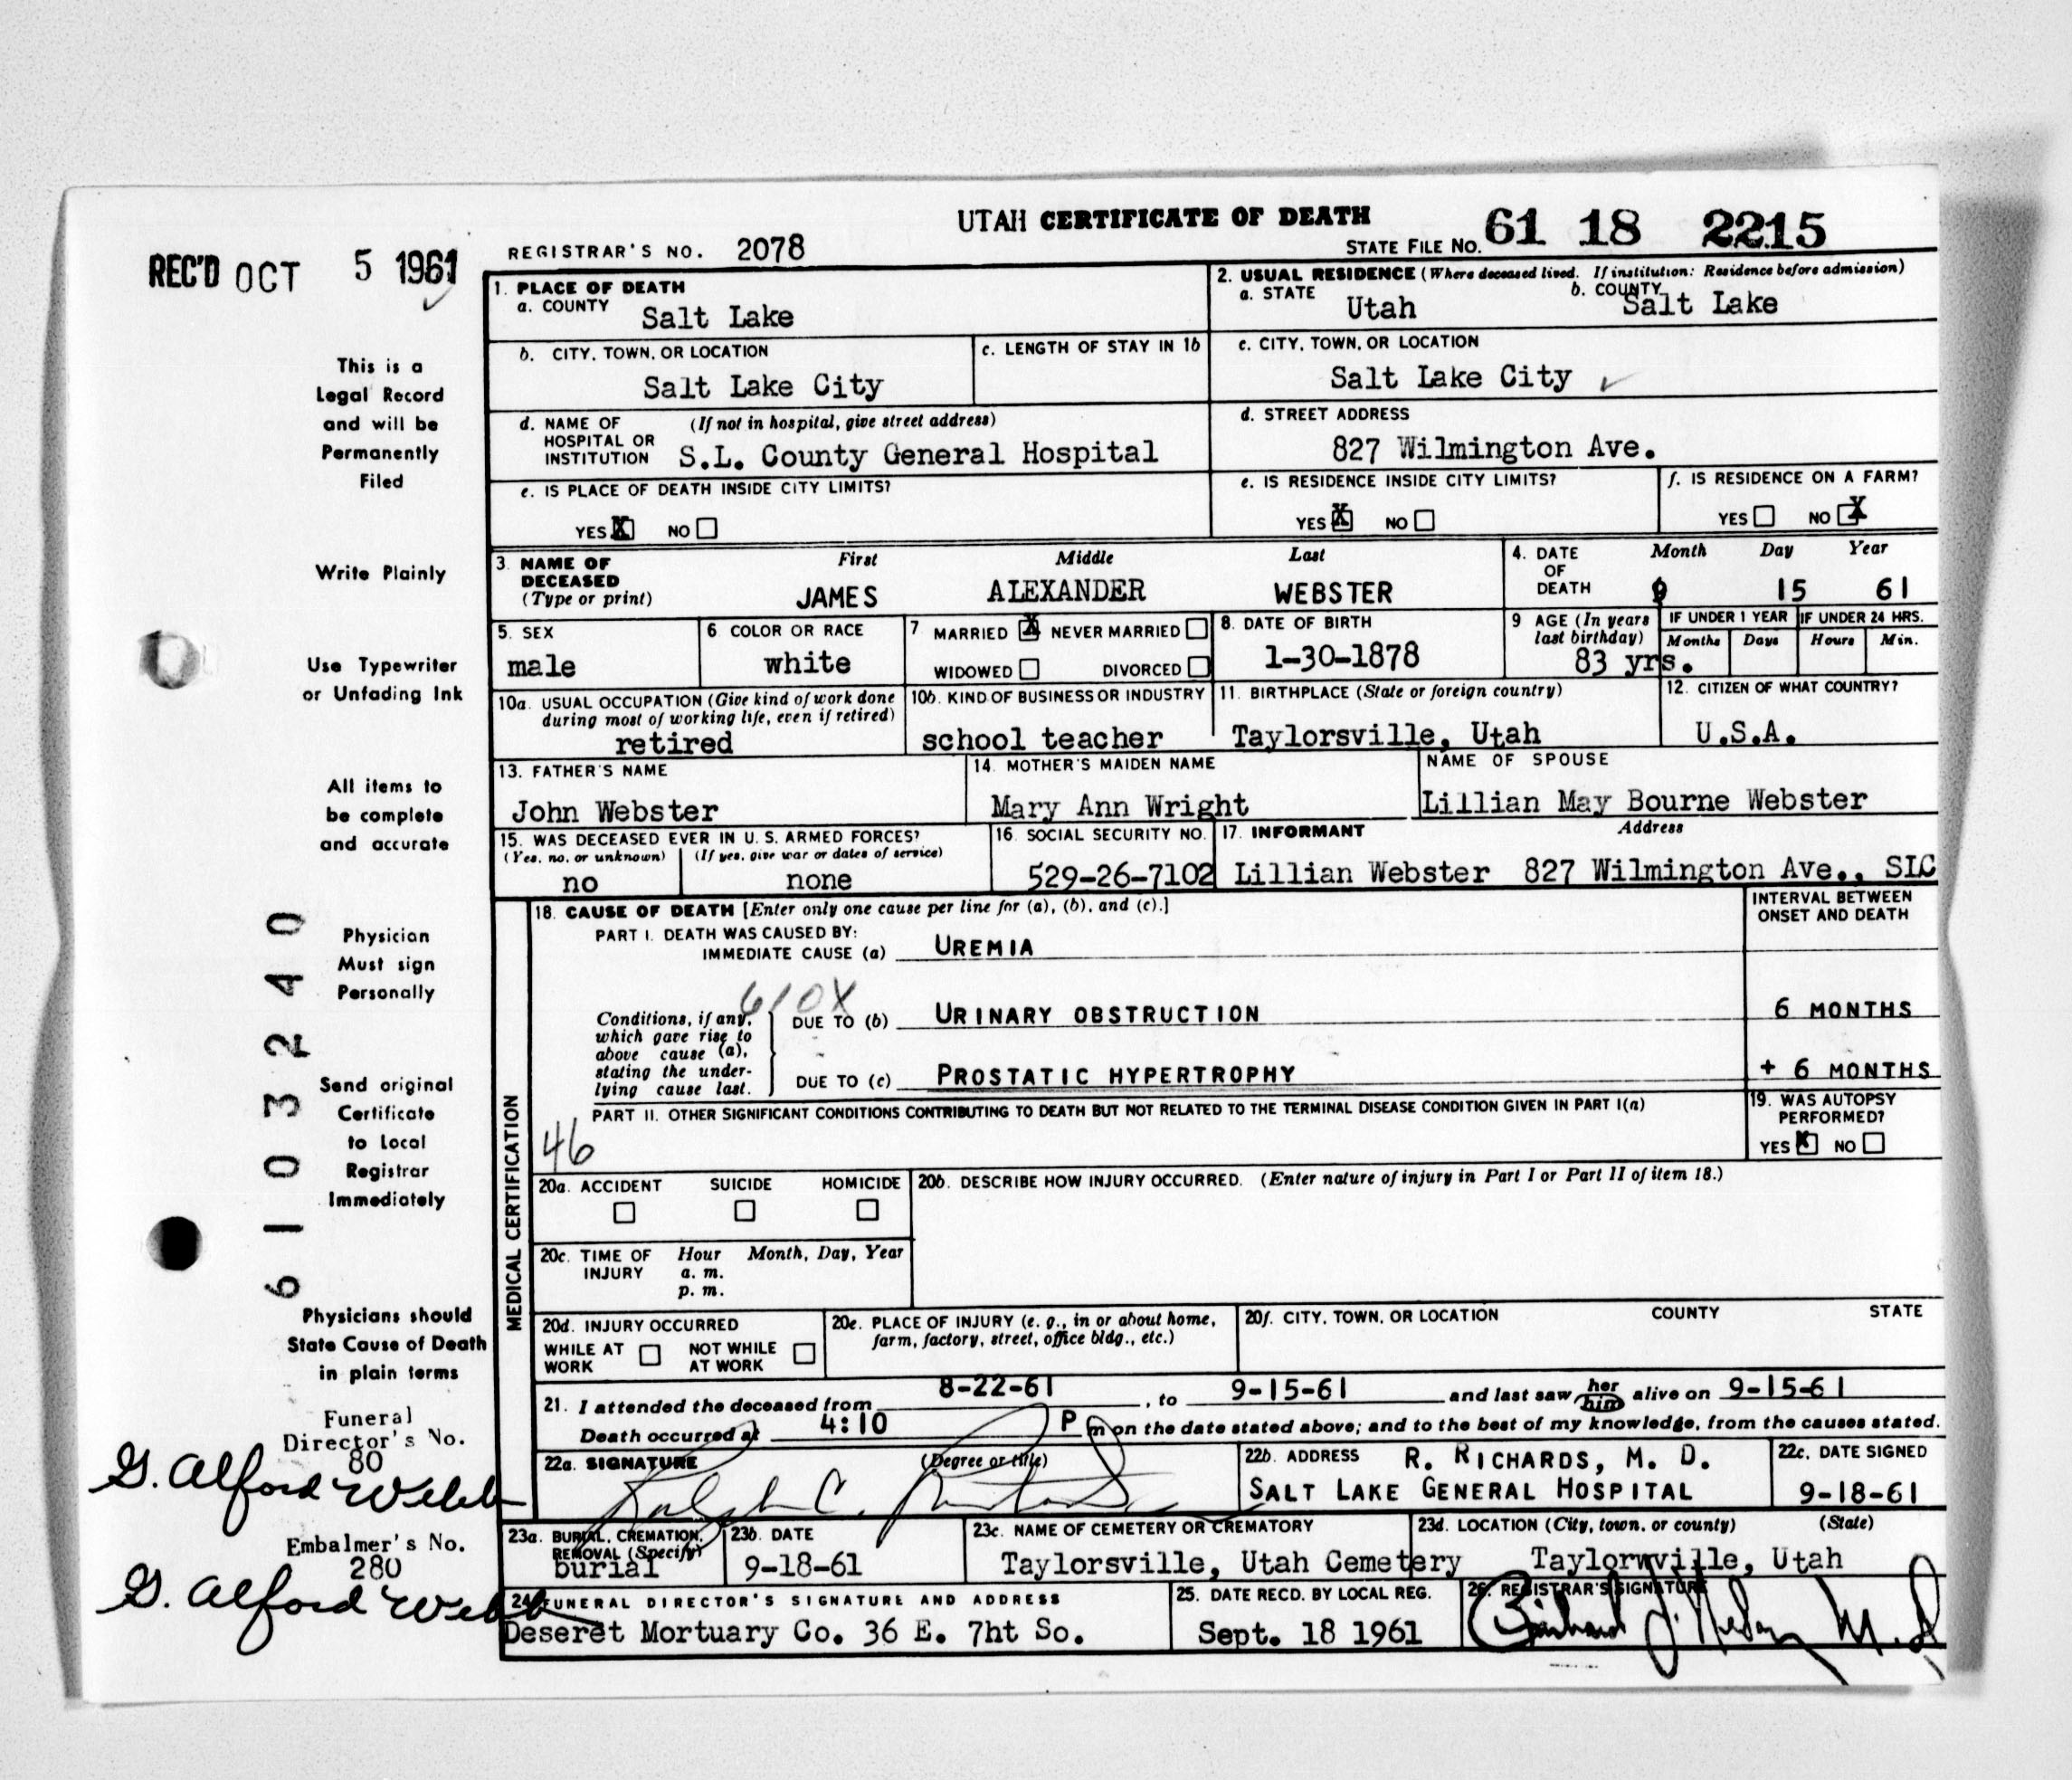 UTAH CERTIFICATE OF DEATH
REGISTRAR'S NO. 2078
STATE FILE NO. 61 18 2215
REC'D OCT 5 1961
1. PLACE OF DEATH
a. COUNTY Salt Lake
2. USUAL RESIDENCE (Where deceased lived. If institution: Residence before admission)
a. STATE Utah b. COUNTY Salt Lake
b. CITY, TOWN, OR LOCATION Salt Lake City
c. LENGTH OF STAY IN 1b
c. CITY, TOWN, OR LOCATION
Salt Lake City ✓
d. NAME OF HOSPITAL OR INSTITUTION (If not in hospital, give street address)
S.L. County General Hospital
d. STREET ADDRESS
827 Wilmington Ave.
e. IS PLACE OF DEATH INSIDE CITY LIMITS?
YES X NO
e. IS RESIDENCE INSIDE CITY LIMITS?
YES X NO
f. IS RESIDENCE ON A FARM?
YES NO X
3. NAME OF DECEASED (Type or print)
First Middle Last
JAMES ALEXANDER WEBSTER
4. DATE OF DEATH Month Day Year
9 15 61
5. SEX
male
6 COLOR OR RACE
white
7 MARRIED X NEVER MARRIED
WIDOWED DIVORCED
8. DATE OF BIRTH
1-30-1878
9 AGE (In years last birthday)
83 yrs.
IF UNDER 1 YEAR IF UNDER 24 HRS.
Months Days Hours Min.
10a. USUAL OCCUPATION (Give kind of work done during most of working life, even if retired)
retired
10b. KIND OF BUSINESS OR INDUSTRY
school teacher
11. BIRTHPLACE (State or foreign country)
Taylorsville, Utah
12. CITIZEN OF WHAT COUNTRY?
U.S.A.
13. FATHER'S NAME
John Webster
14. MOTHER'S MAIDEN NAME
Mary Ann Wright
NAME OF SPOUSE
Lillian May Bourne Webster
15. WAS DECEASED EVER IN U. S. ARMED FORCES?
(Yes, no, or unknown) (If yes, give war or dates of service)
no none
16. SOCIAL SECURITY NO.
529-26-7102
17. INFORMANT Address
Lillian Webster 827 Wilmington Ave., SLC
MEDICAL CERTIFICATION
18. CAUSE OF DEATH [Enter only one cause per line for (a), (b), and (c).]
INTERVAL BETWEEN ONSET AND DEATH
PART I. DEATH WAS CAUSED BY:
IMMEDIATE CAUSE (a) UREMIA
610X
Conditions, if any, which gave rise to above cause (a), stating the underlying cause last.
DUE TO (b) URINARY OBSTRUCTION 6 MONTHS
DUE TO (c) PROSTATIC HYPERTROPHY + 6 MONTHS
PART II. OTHER SIGNIFICANT CONDITIONS CONTRIBUTING TO DEATH BUT NOT RELATED TO THE TERMINAL DISEASE CONDITION GIVEN IN PART I(a)
46
19. WAS AUTOPSY PERFORMED?
YES X NO
20a. ACCIDENT SUICIDE HOMICIDE
20b. DESCRIBE HOW INJURY OCCURRED. (Enter nature of injury in Part I or Part II of item 18.)
20c. TIME OF INJURY Hour Month, Day, Year
a. m.
p. m.
20d. INJURY OCCURRED
WHILE AT WORK NOT WHILE AT WORK
20e. PLACE OF INJURY (e. g., in or about home, farm, factory, street, office bldg., etc.)
20f. CITY, TOWN, OR LOCATION COUNTY STATE
21. I attended the deceased from 8-22-61, to 9-15-61 and last saw her him alive on 9-15-61
Death occurred at 4:10 P m on the date stated above; and to the best of my knowledge, from the causes stated.
22a. SIGNATURE (Degree or title)
Ralph C. Richards
22b. ADDRESS R. RICHARDS, M. D.
SALT LAKE GENERAL HOSPITAL
22c. DATE SIGNED
9-18-61
23a. BURIAL, CREMATION, REMOVAL (Specify)
burial
23b. DATE
9-18-61
23c. NAME OF CEMETERY OR CREMATORY
Taylorsville, Utah Cemetery
23d. LOCATION (City, town, or county) (State)
Taylorwville, Utah
24 FUNERAL DIRECTOR'S SIGNATURE AND ADDRESS
Deseret Mortuary Co. 36 E. 7ht So.
25. DATE RECD. BY LOCAL REG.
Sept. 18 1961
26. REGISTRAR'S SIGNATURE
M.D
This is a
Legal Record
and will be
Permanently
Filed
Write Plainly
Use Typewriter
or Unfading Ink
All items to
be complete
and accurate
Physician
Must sign
Personally
Send original
Certificate
to Local
Registrar
Immediately
Physicians should
State Cause of Death
in plain terms
61 03240
Funeral
Director's No.
80
G. Alford Webb
Embalmer's No.
280
G. Alford Webb